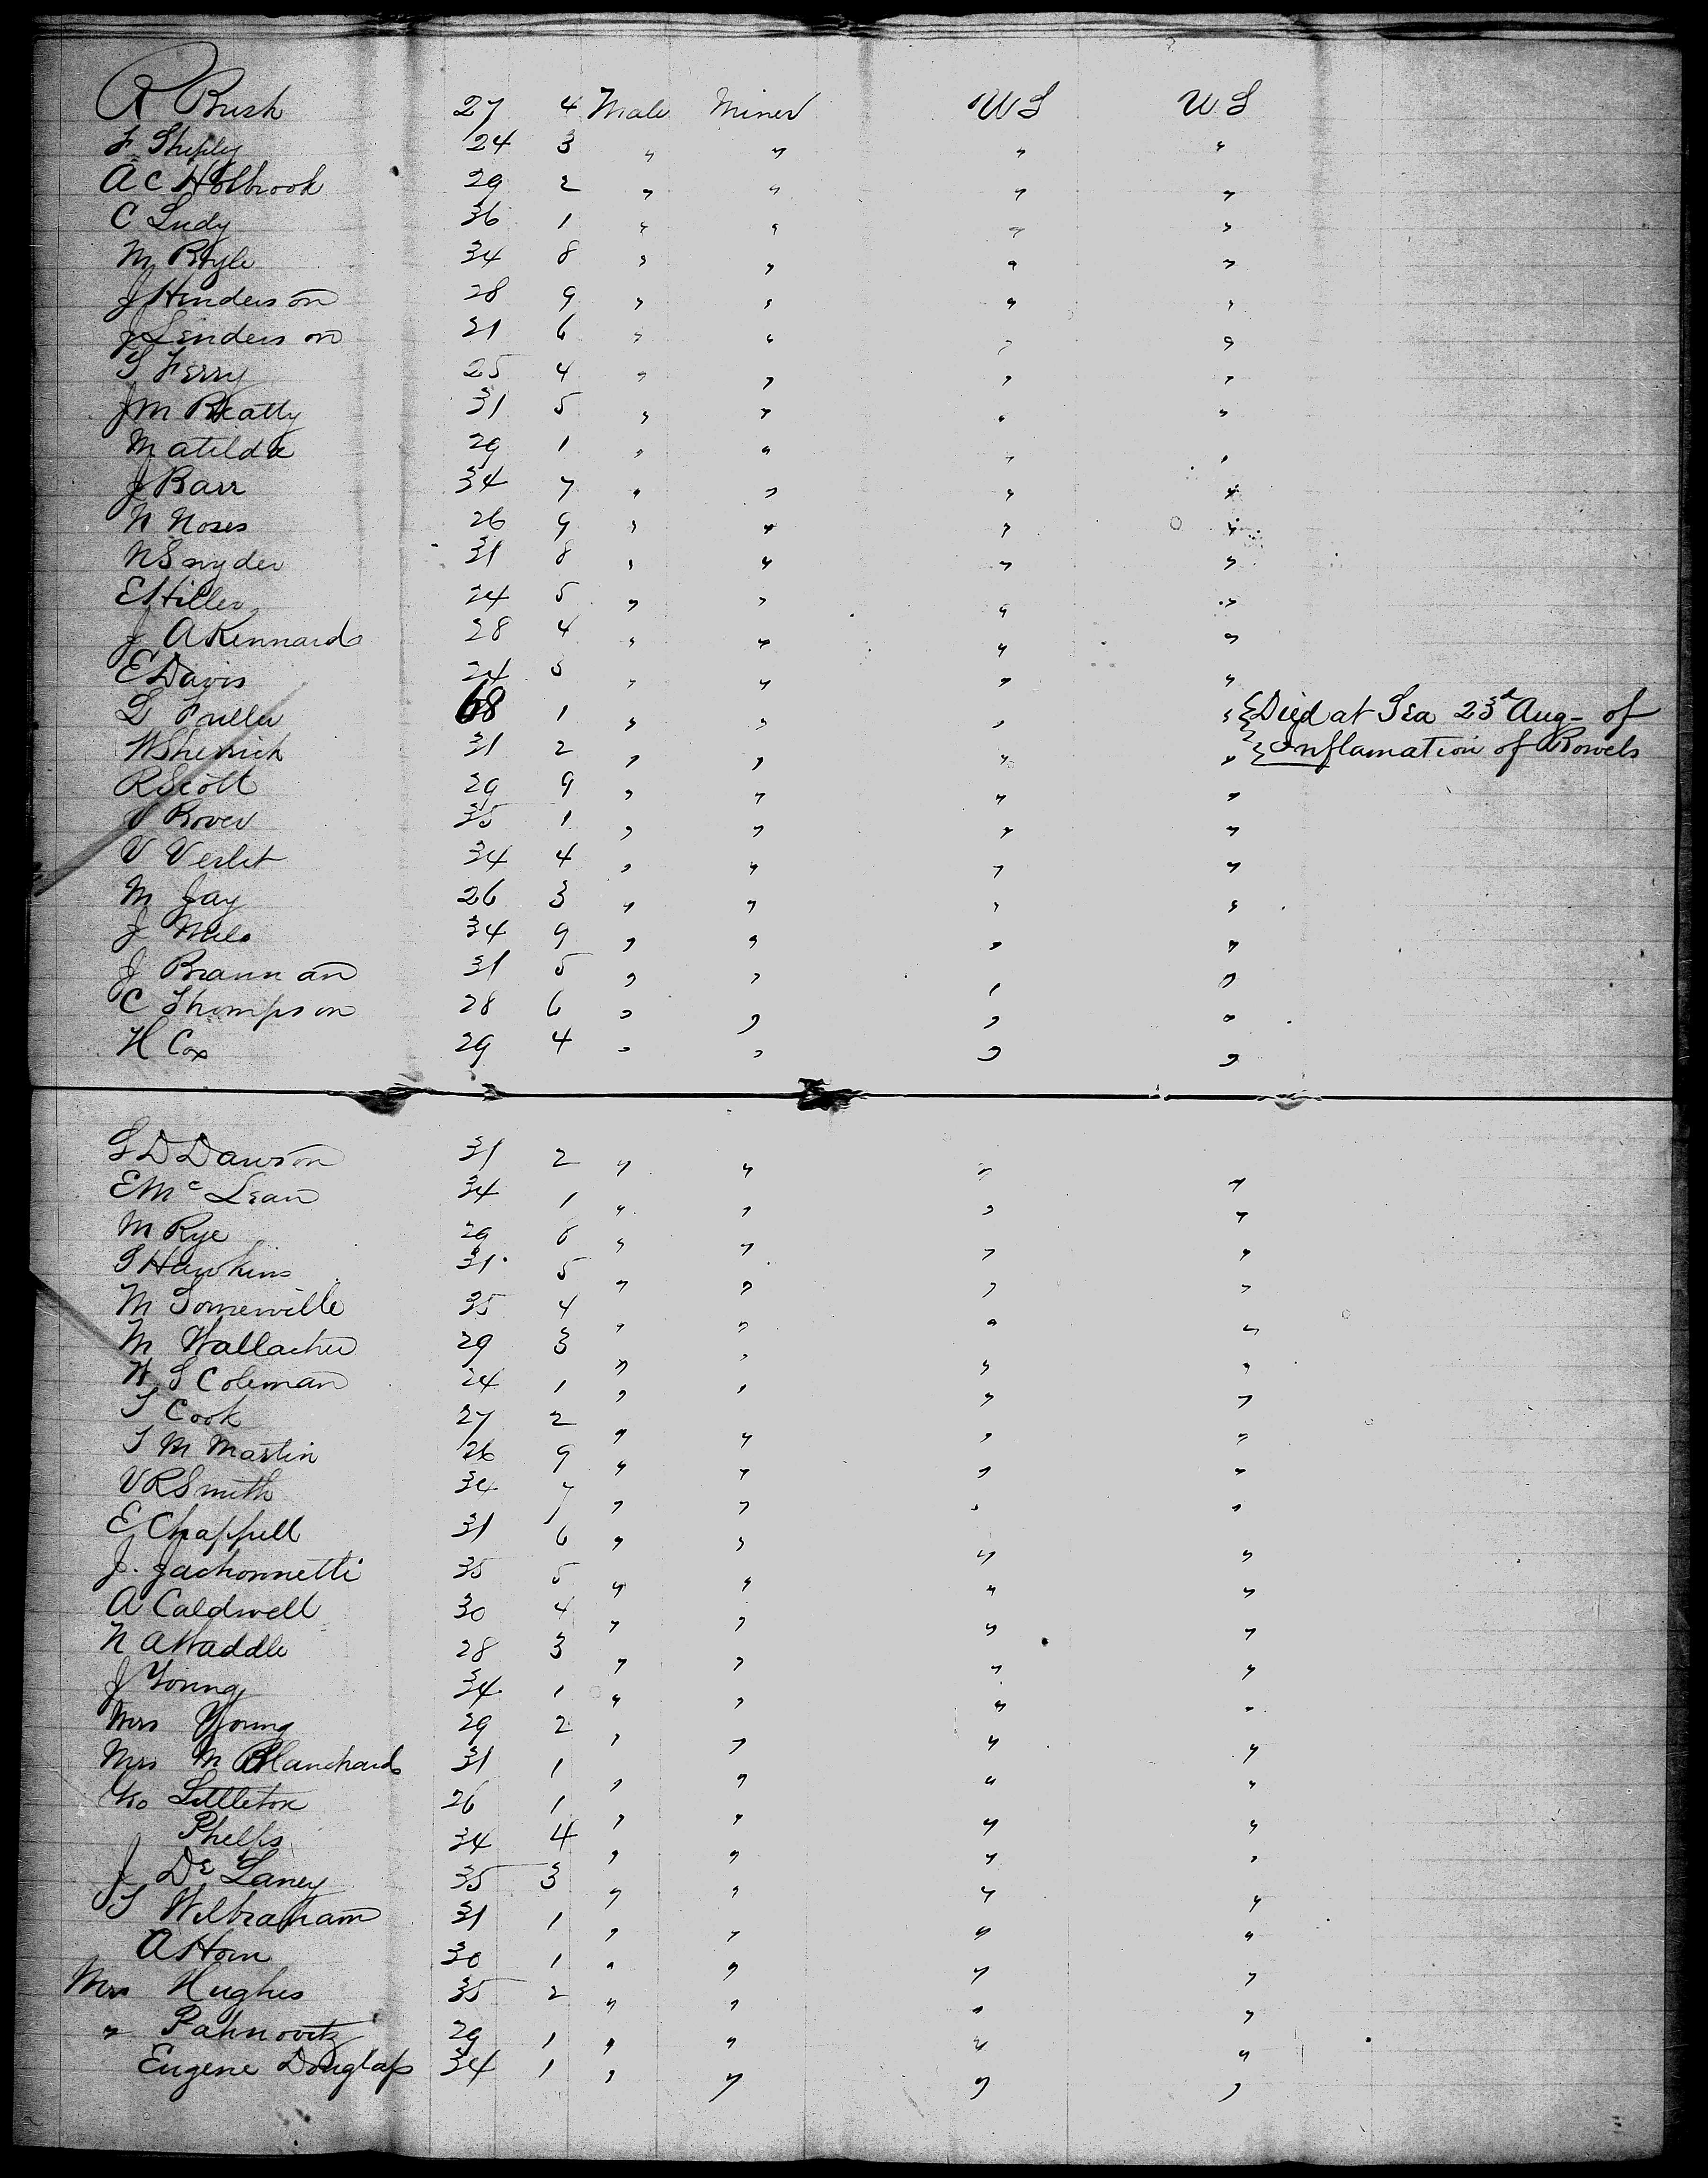 R Bush 27 4 Male Miner U S U S
F Shipley 24 3 " " " "
A C Holbrook 29 2 " " " "
C Ludy 36 1 " " " "
M Ryle 34 8 " " " "
J Hinderson 28 9 " " " "
J Linderson 21 6 " " " "
S Ferry 25 4 " " " "
J M Beatty 31 5 " " " "
Matilda 29 1 " " " "
J Barr 34 7 " " " "
N Noses 26 9 " " " "
N Snyder 31 8 " " " "
E Hiller 24 5 " " " "
J A Kennard 28 4 " " " "
E Davis 24 5 " " " "
L Fuller 68 1 " " " " Died at Sea 23d Aug - of
W Sherrick 31 2 " " " " Inflamation of Bowels
R Scott 29 9 " " " "
V Rover 35 1 " " " "
V Verlet 34 4 " " " "
M Jay 26 3 " " " "
J Milo 34 9 " " " "
J Brannan 31 5 " " " "
C Thompson 28 6 " " " "
H Cox 29 4 " " " "
S D Dawson 31 2 " " " "
E Mc Lean 34 1 " " " "
M Rye 29 8 " " " "
S Hawkins 31 5 " " " "
M Somerville 35 4 " " " "
M Wallacher 29 3 " " " "
W S Coleman 24 1 " " " "
T Cook 27 2 " " " "
T M Martin 26 9 " " " "
V R Smith 34 7 " " " "
E Chappell 31 6 " " " "
J. Jachonnetti 35 5 " " " "
A Caldwell 30 4 " " " "
N A Waddle 28 3 " " " "
J Young 34 1 " " " "
Mrs Young 29 2 " " " "
Mrs M Blanchard 31 1 " " " "
Geo Littleton 26 1 " " " "
Phelps 34 4 " " " "
J De Laney 35 3 " " " "
T Wilbraham 31 1 " " " "
A Horn 30 1 " " " "
Mrs Hughes 35 2 " " " "
" Pahnovitz 29 1 " " " "
Eugene Douglass 34 1 " " " "